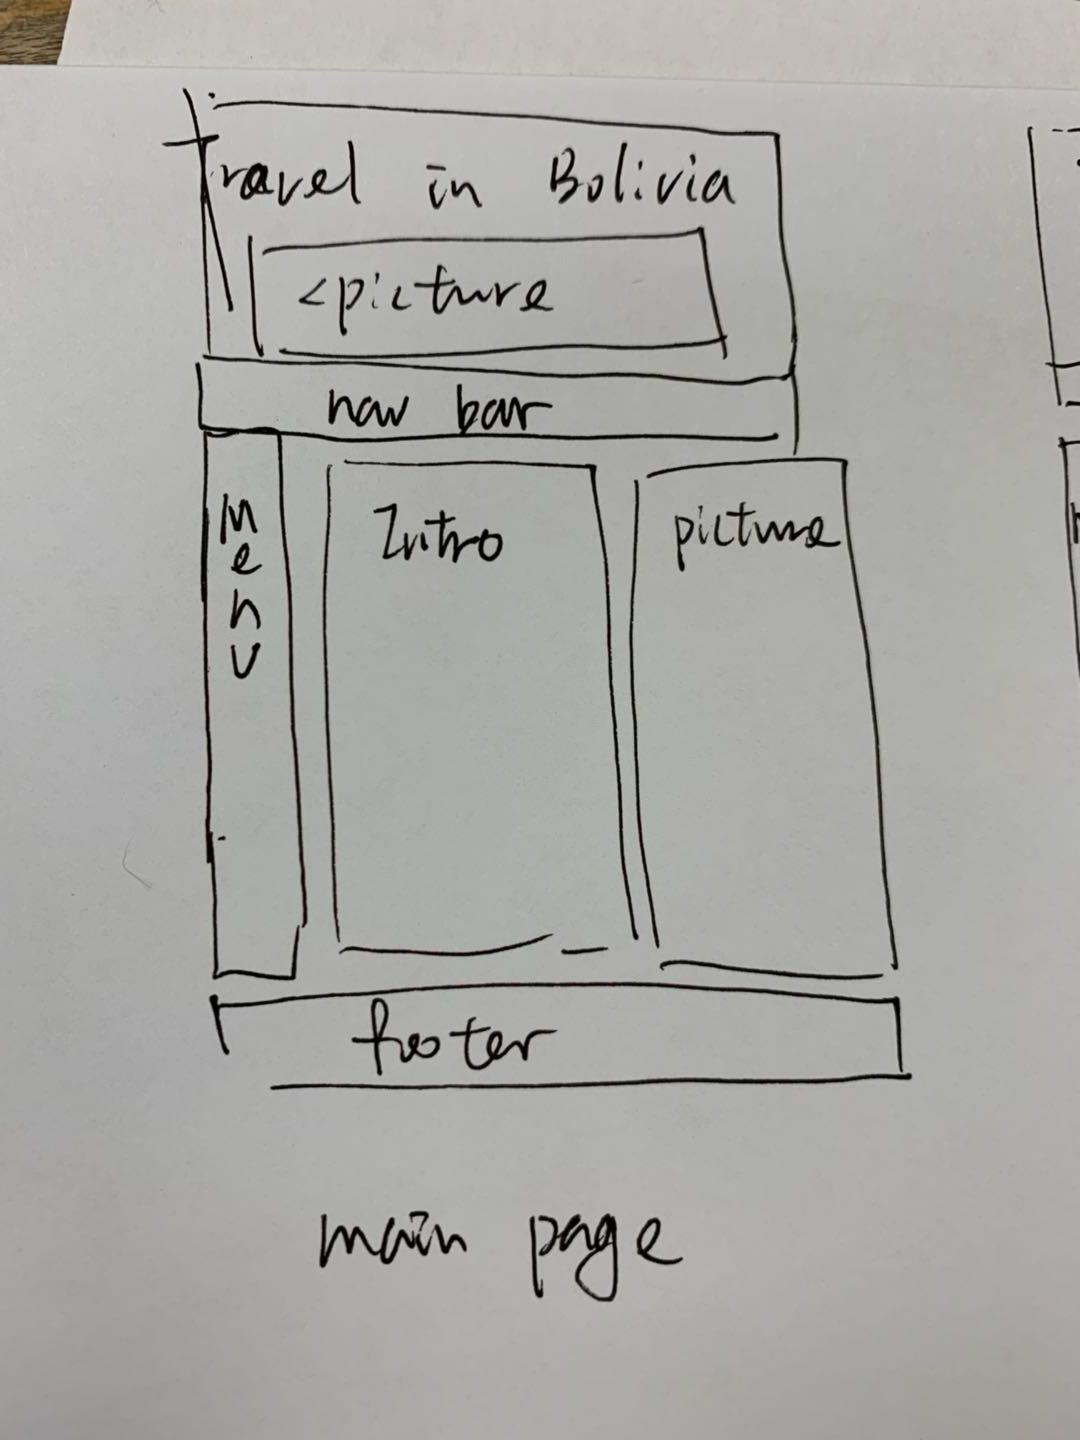 Travel in Bolivia
<picture
nav bar
Menu
Intro
picture
footer
main page